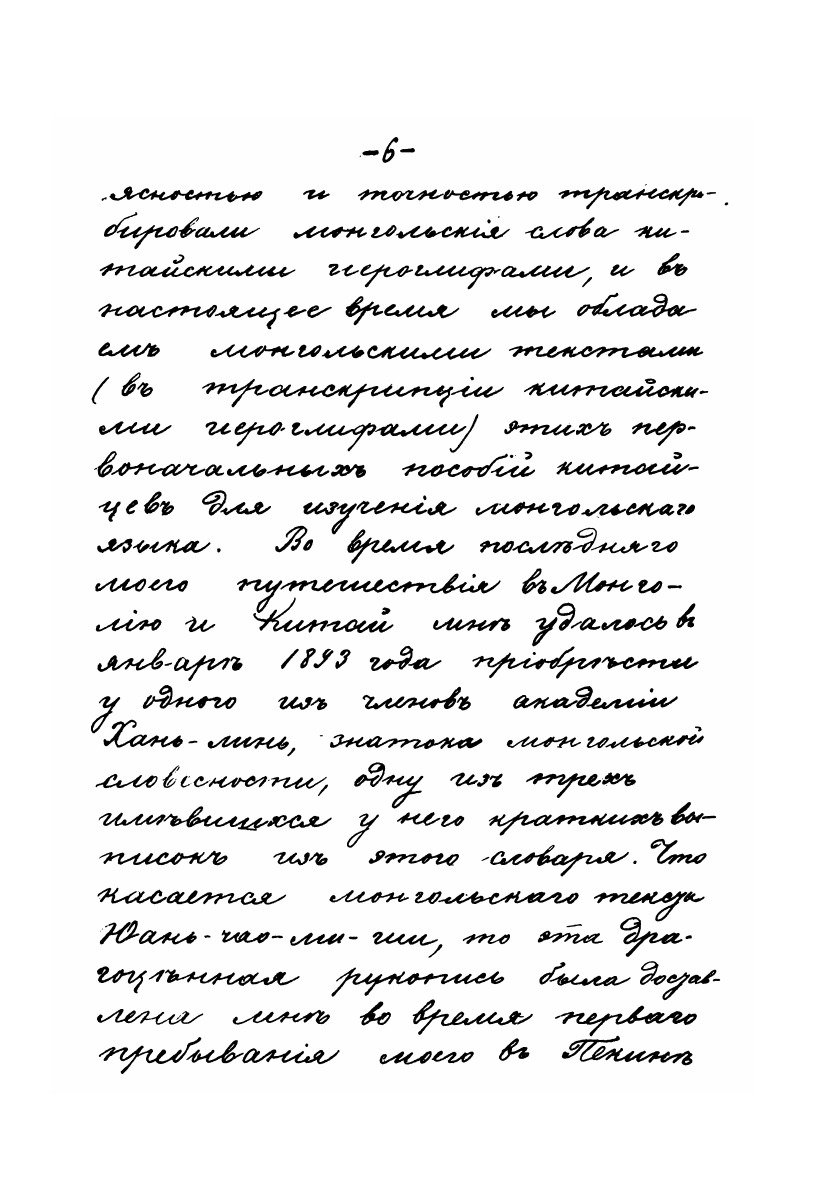 -6-
ясностью и точностью транскри-
бировали монгольскія слова ки-
тайскими гіероглифами, и въ
настоящее время мы облада
емъ монгольскими текстами
(въ транскрипціи китайски-
ми гіероглифами) этихъ пер-
воначальныхъ пособій китай-
цевъ для изученія монгольскаго
языка. Во время послѣдняго
моего путешествія въ Монго-
лію и Китай мнѣ удалось въ
январѣ 1893 года пріобрѣсти
у одного изъ членовъ академіи
Хань-линь, знатока монгольской
словесности, одну изъ трехъ
имѣвшихся у него краткихъ вы-
писокъ изъ этого словаря. Что
касается монгольскаго текста
Юань-чао-ми-ши, то эта дра-
гоцѣнная рукопись была достав-
лена мнѣ во время перваго
пребыванія моего въ Пекинѣ